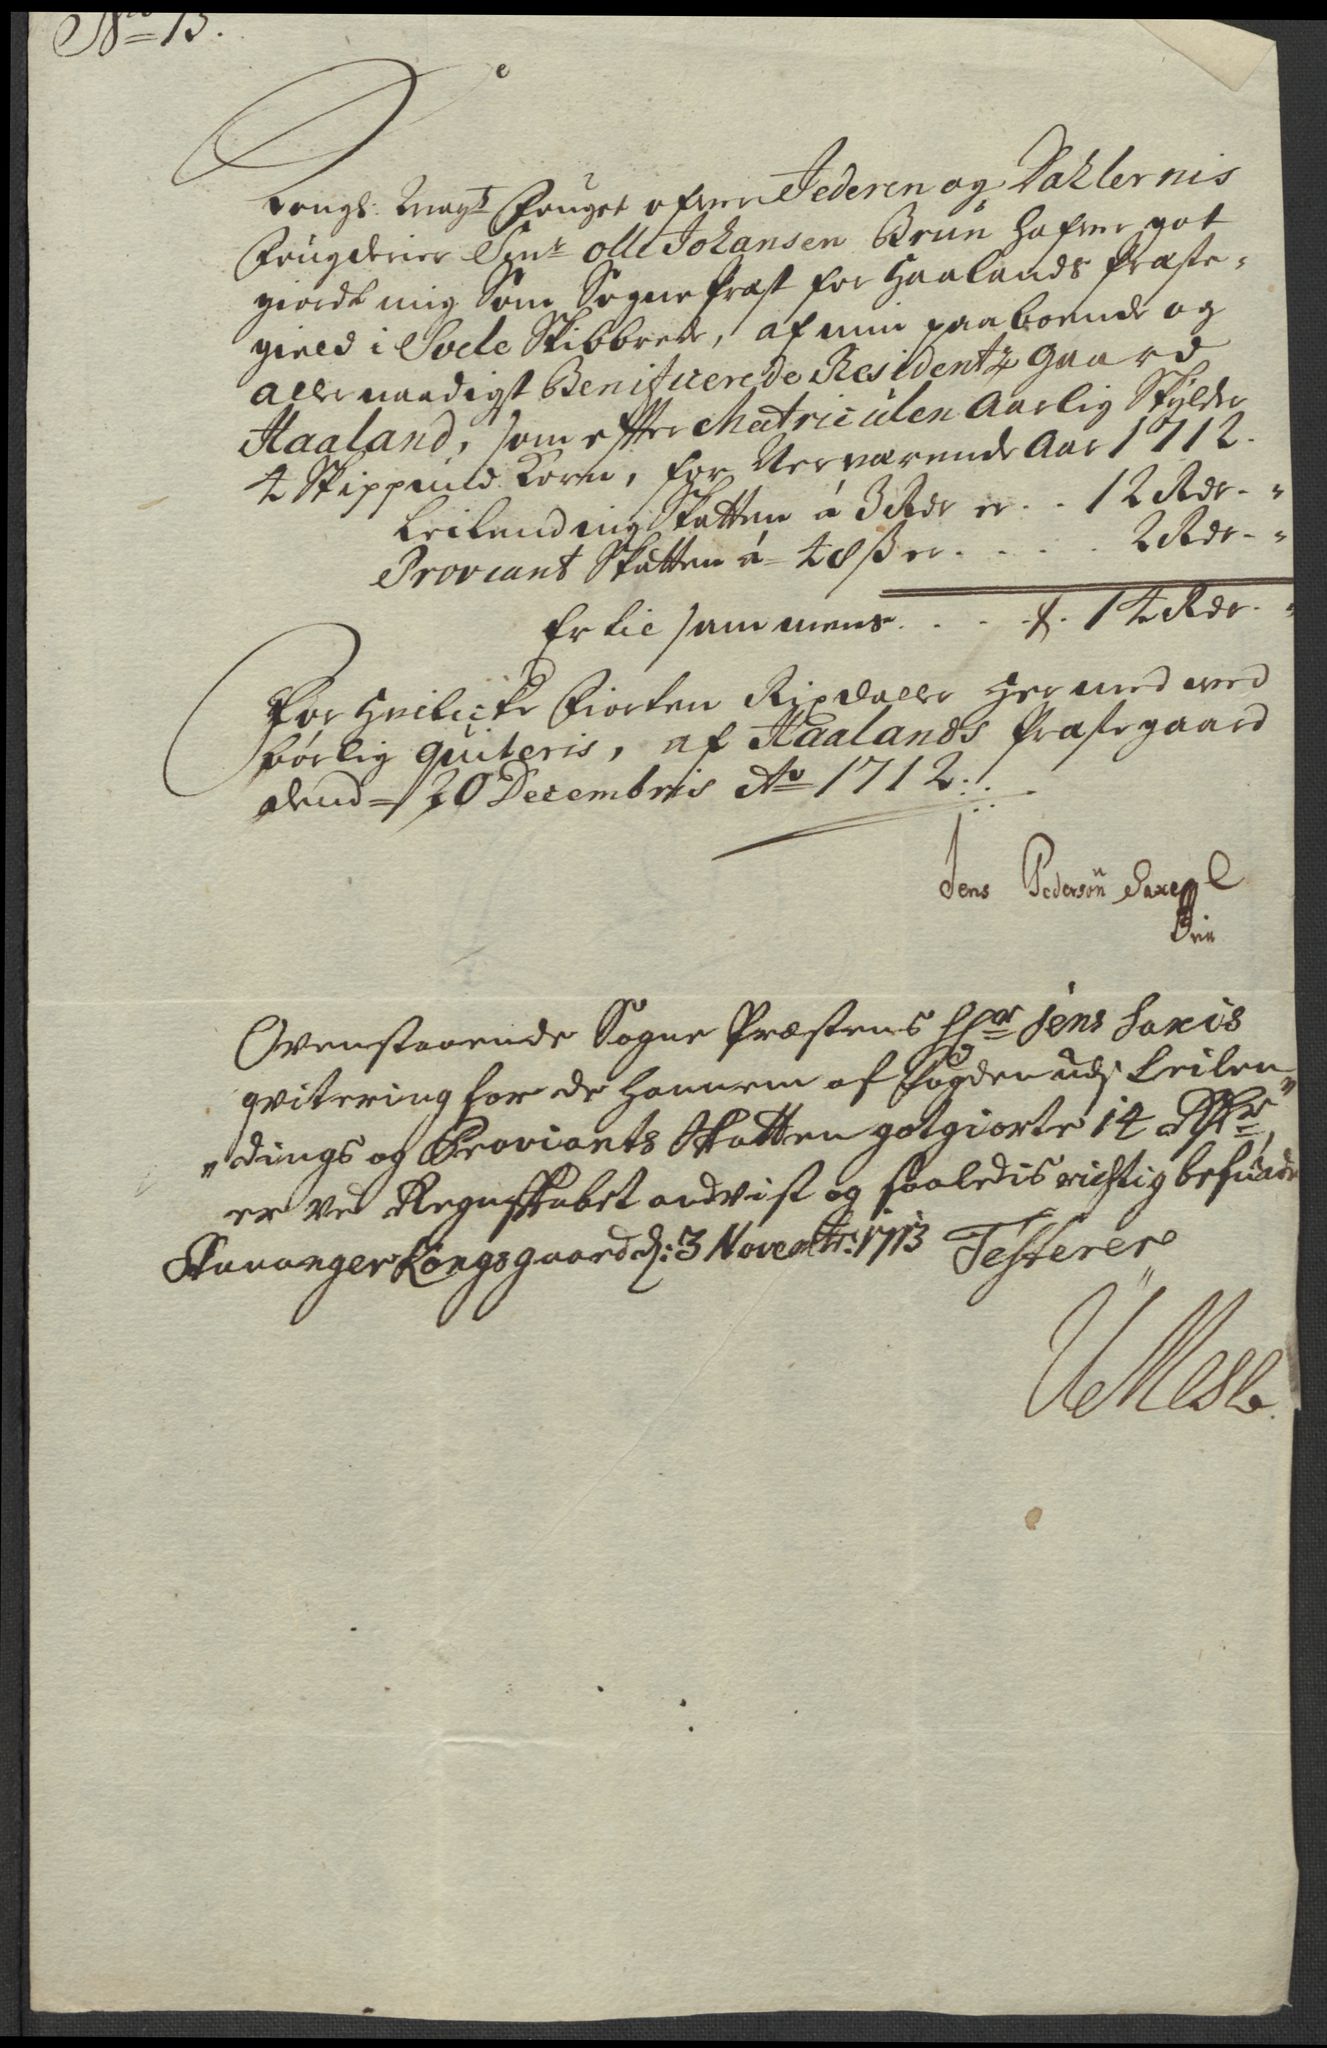 No 13.
Kongl: Mayts Fouget ofver Jederen og Dahlernis
Fougderier Sinr olle Johansen Brun hafver got
giordt mig Som Sogne Præst for Haalands Præste-
gield i Sole Skibbrede, af min paaboende og
allernaadigst Benificerede Residentz gaard
Haaland, som effter Matriculen Aarlig Skylder
4 Skippund Korn, for Nerværende Aar 1712.
Leilending Skatten á 3 Rdr er . . 12 Rdr - "
Proviant Skatten á - 48 ß er . . . . . 2 Rdr - "
Er tilsammens . . . . 14 Rdr - "
For Hvilcke Fiorten Rixdaller Hermed med
børlig quiteris, af Haalands Præstegaard
dend = 20 Decembris Ao 1712.
Jens Pedersøn Saxe
Ovenstaaende Sogne Præstens Hr Jens Saxis
qvitering for de hannem af fogden udj Leilen-
"dings og Proviants Skatten gotgiorte 14 Rdr,
er ved Regnskabet andvist og saaledis richtig befunden
Stavanger Kongsgaard d: 3 Novembr: 1713 Testerer